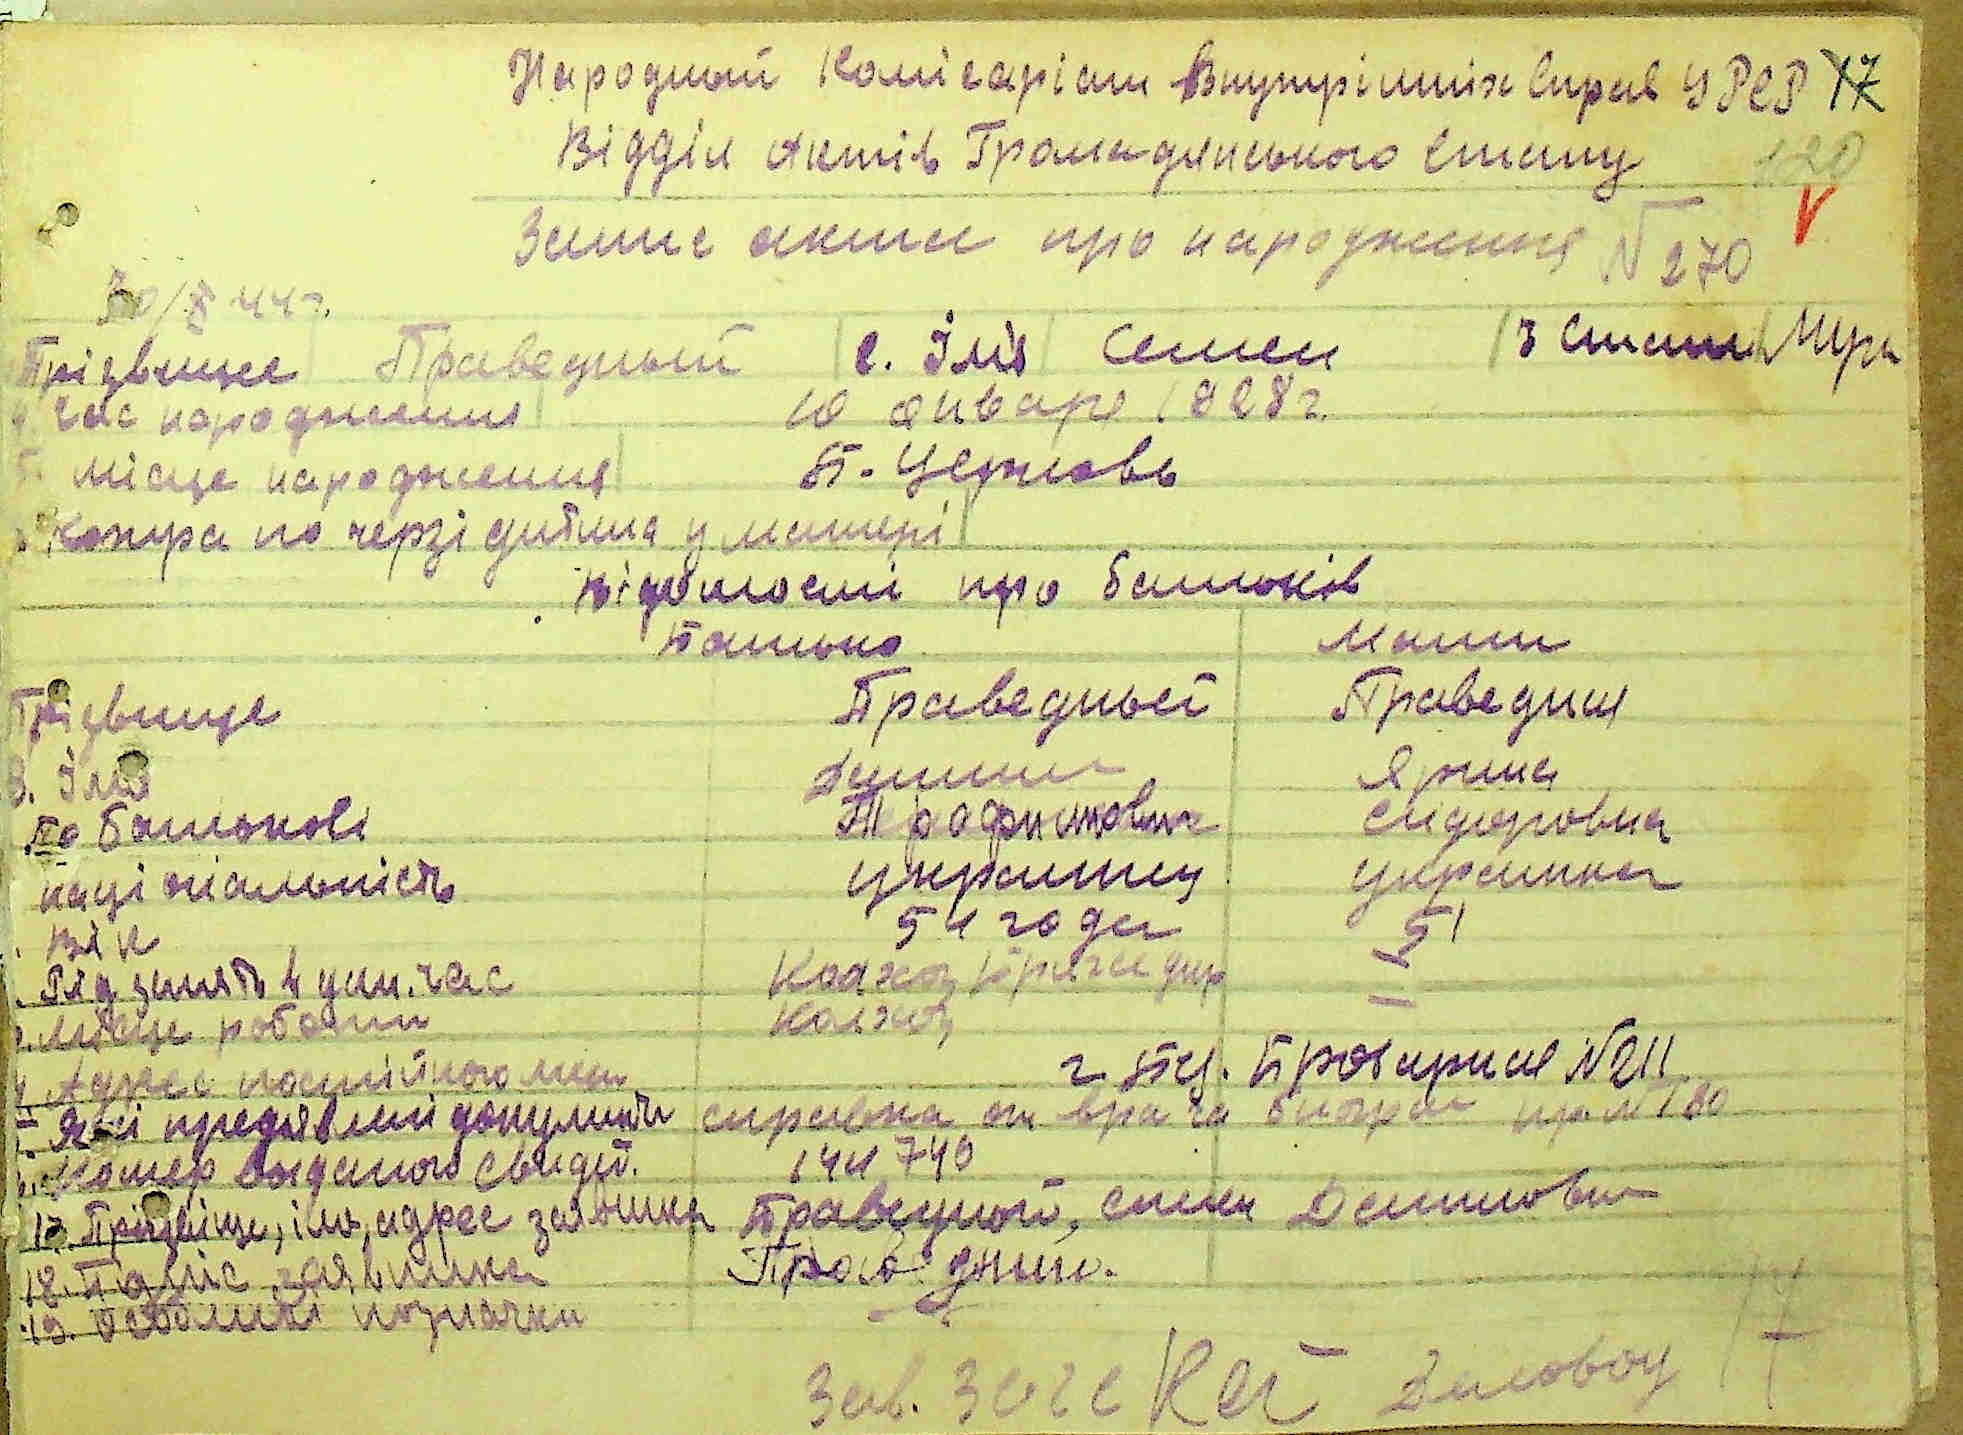 Народный Комісаріат Внутрішніх Справ УРСР 17
Відділ Актів Громадянського Стану 120
Запис акта про народження N 270
30/X 44 г.
Прізвище Праведный 2. Імя Семен 3 Стать Муж
4. Час народження 10 января 1928 г.
5. Місце народження Б. Церковь
Котра по черзі дитина у матері
Відомості про батьків
Батько Мати
Прізвище Праведный Праведная
8. Імя Ярина
По батькові Трофимович Сидоровна
національність украинец украинка
Вік 54 года 51
Рід занять в дан. час Колхоз
Місце роботи Колхоз
Адрес постійного г. БЦ. Пролетарская N 211
Які предявлені документи справка от врача N 180
Номер выданого свидет. 740
17. Прізвіще, імя, адрес заявника Праведный, Семен Данилович
18. Підпіс заявника
19. Особливі позначки
Зав. ЗАГС
17